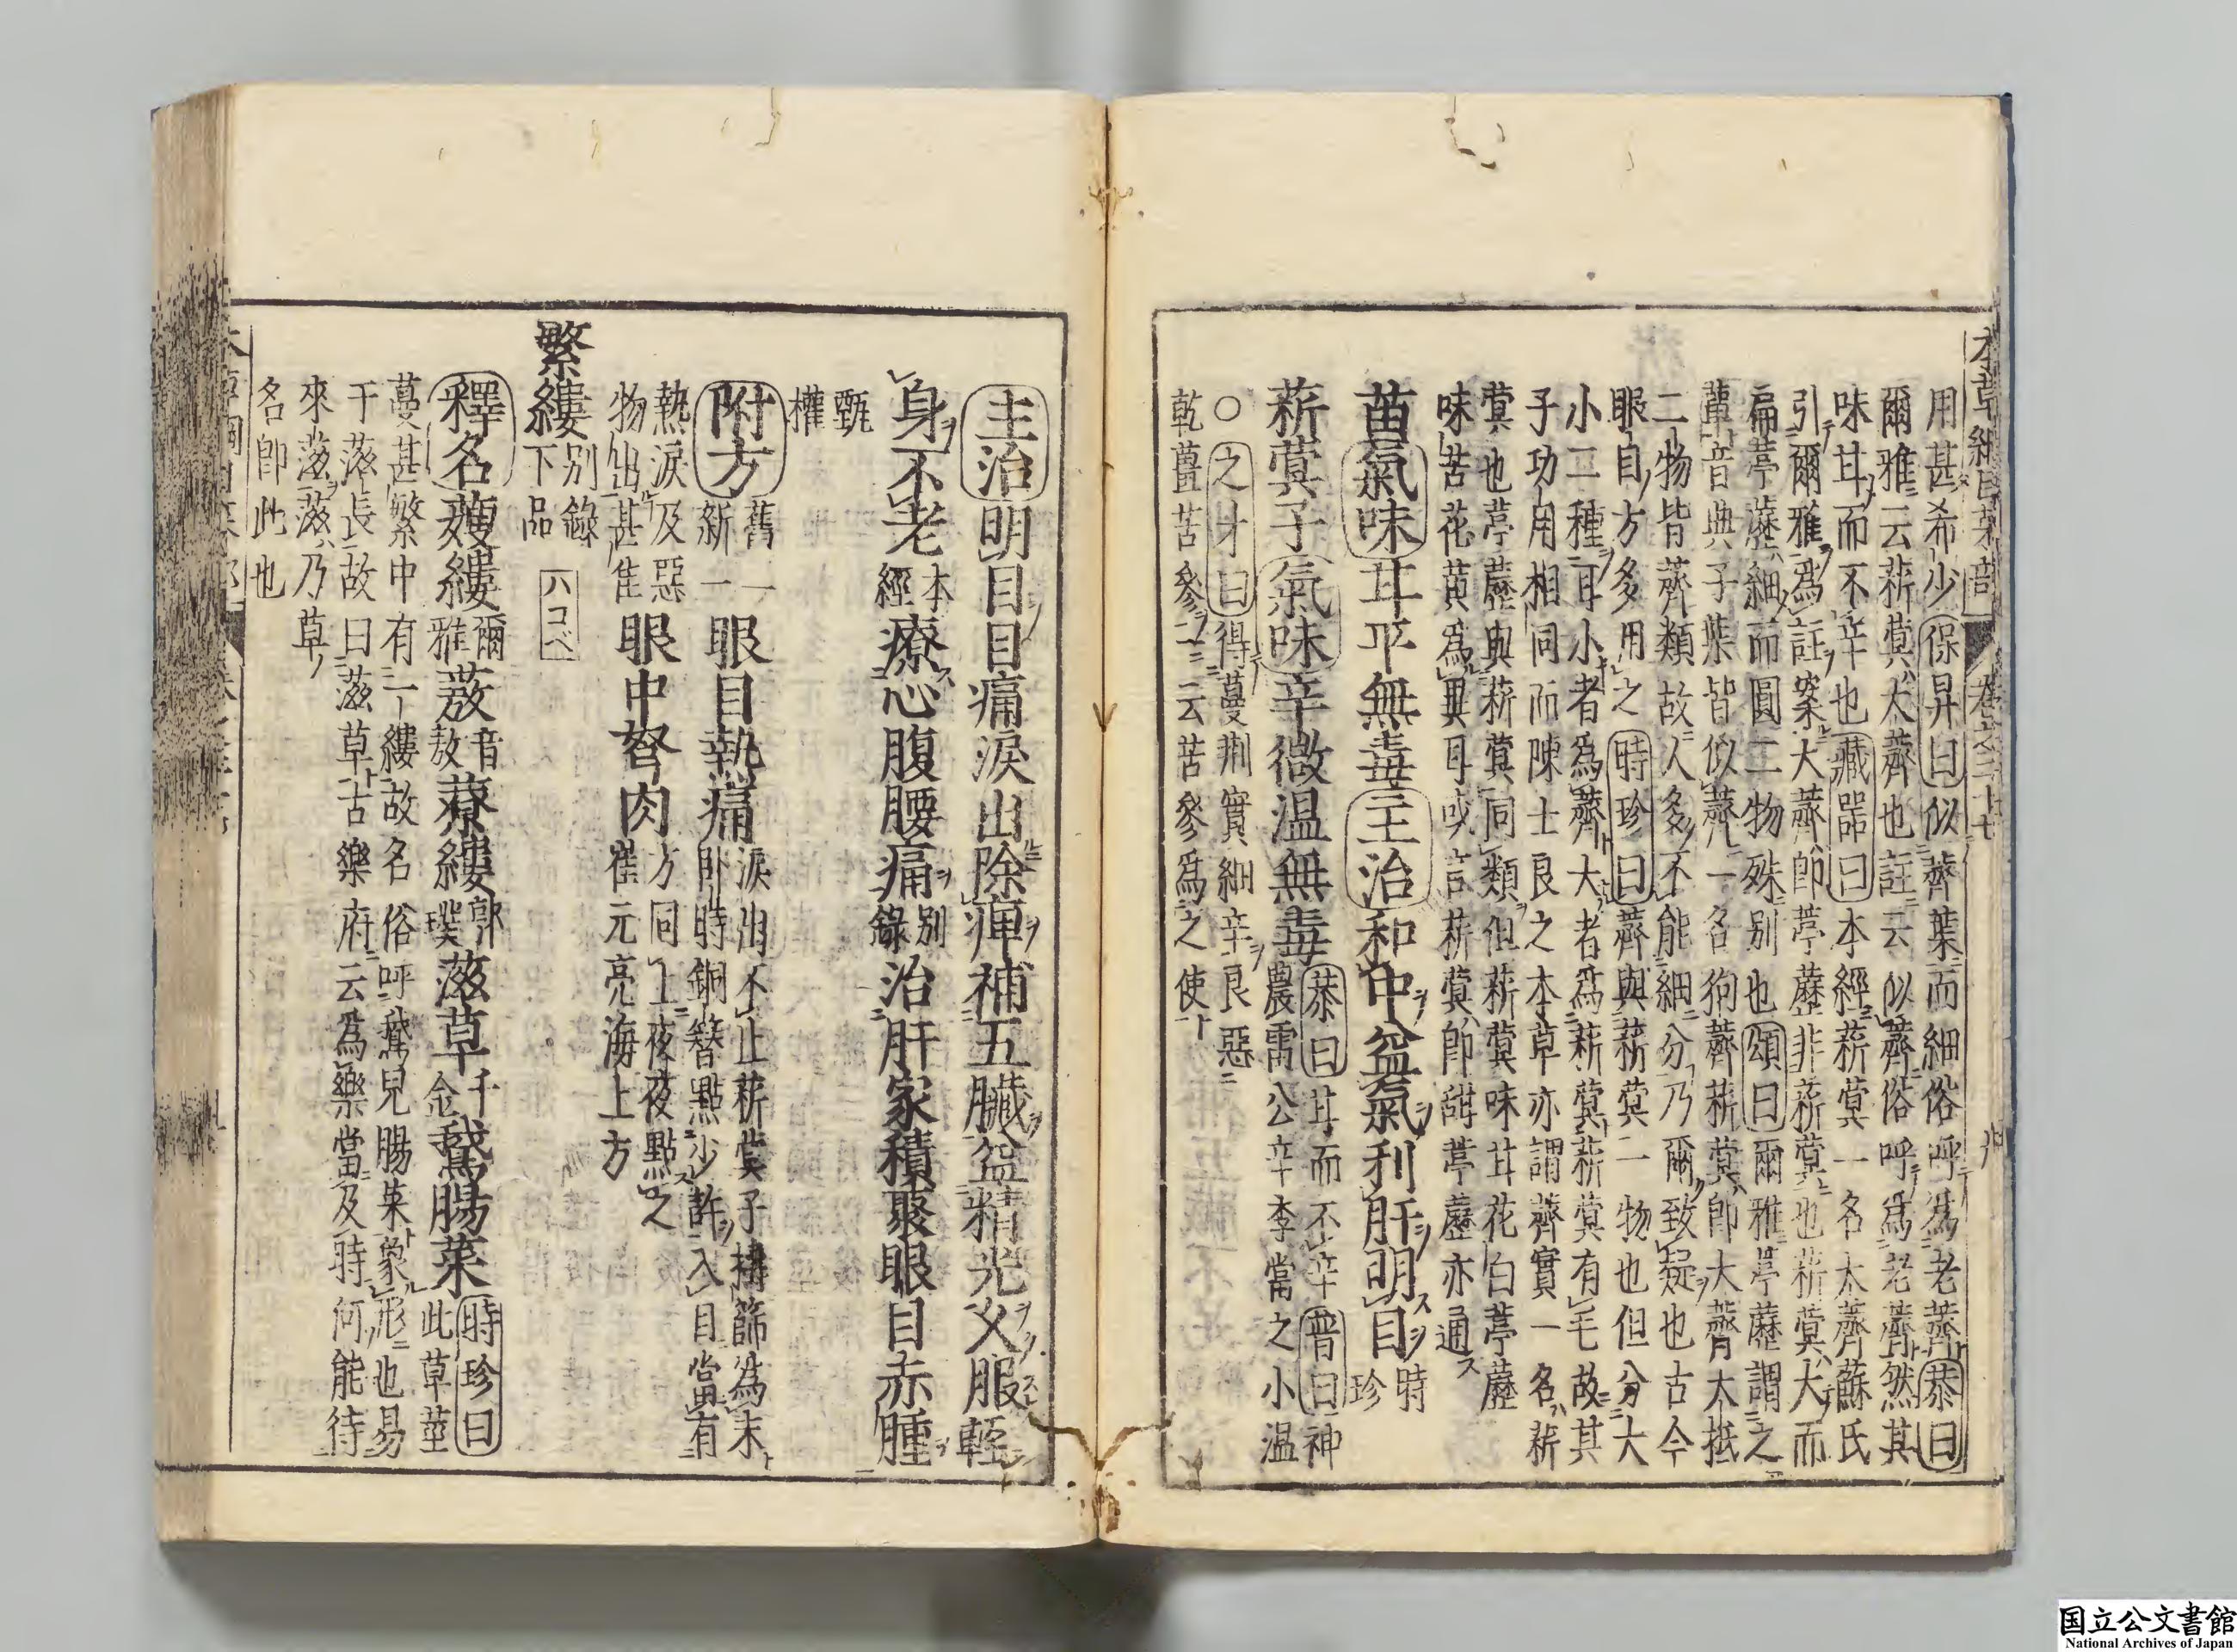 本草綱目菜部 卷之二十七
用甚希少保昇曰似薺葉而細俗呼爲老薺恭曰
爾雅云菥蓂大薺也註云似薺俗呼爲老薺然其
味甘而不辛也藏器曰本經菥蓂一名大薺蘇氏
引爾雅爲註案大薺卽葶藶非菥蓂也菥蓂大而
扁葶藶細而圓二物殊別也頌曰爾雅葶藶謂之
蕇音典子葉皆似薺一名狗薺菥蓂卽大薺大抵
二物皆薺類故人多不能細分乃爾致疑也古今
眼目方多用之時珍曰薺與菥蓂一物也但分大
小二種耳小者爲薺大者爲菥蓂菥蓂有毛故其
子功用相同而陳士良之本草亦謂薺實一名菥
蓂也葶藶與菥蓂同類但菥蓂味甘花白葶藶
味苦花黄爲異耳或言菥蓂卽甜葶藶亦通
苗氣味甘平無毒主治和中益氣利肝明目時珍
菥蓂子氣味辛微温無毒恭曰甘而不辛普曰神農雷公辛李當之小温
○之才曰得蔓荆實細辛良惡
乾薑苦參一云苦參爲之使
主治明目目痛淚出除痺補五臟益精光久服輕
身不老本經療心腹腰痛別錄治肝家積聚眼目赤腫
甄權
附方舊一新一眼目熱痛淚出不止菥蓂子搗篩爲末卧時銅簪點少許入目當有
熱淚及惡物出甚佳眼中努肉方同上夜夜點之崔元亮海上方
繁縷別錄下品 ハコベ
釋名蘩縷爾雅蔜音敖藤縷郭璞滋草千金鵞腸菜時珍曰此草莖
蔓甚繁中有一縷故名俗呼鵞兒腸菜象形也易
于滋長故曰滋草古樂府云爲樂當及時何能待
來滋滋乃草
名卽此也
国立公文書館
National Archives of Japan